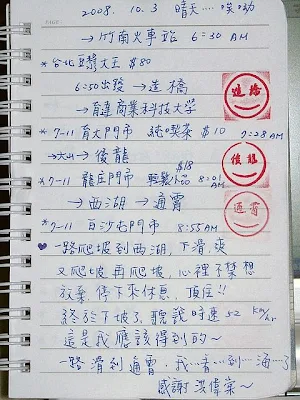 2008. 10. 3 晴天....
→竹南火車站 6:30 AM
*台北豆漿大王 $80
6:50出發→造橋
→育達商業科技大学
造橋
*7-11 育大門市 純喫茶 $10 7:28AM
→大山→後龍
後龍
*7-11 龍庄門市 $18 8:01 AM
→西湖→通霄
通霄
*7-11 白沙屯門市 8:55AM
一路爬坡到西湖,下滑,爽
又爬坡再爬坡,心裡不禁想
放棄,停下來休息,頂住!!
終於下坡了,聽說時速52 km/hr
這是我應該得到的~
一路滑到通霄,我…看…到…海…了
感謝 洪偉棠~